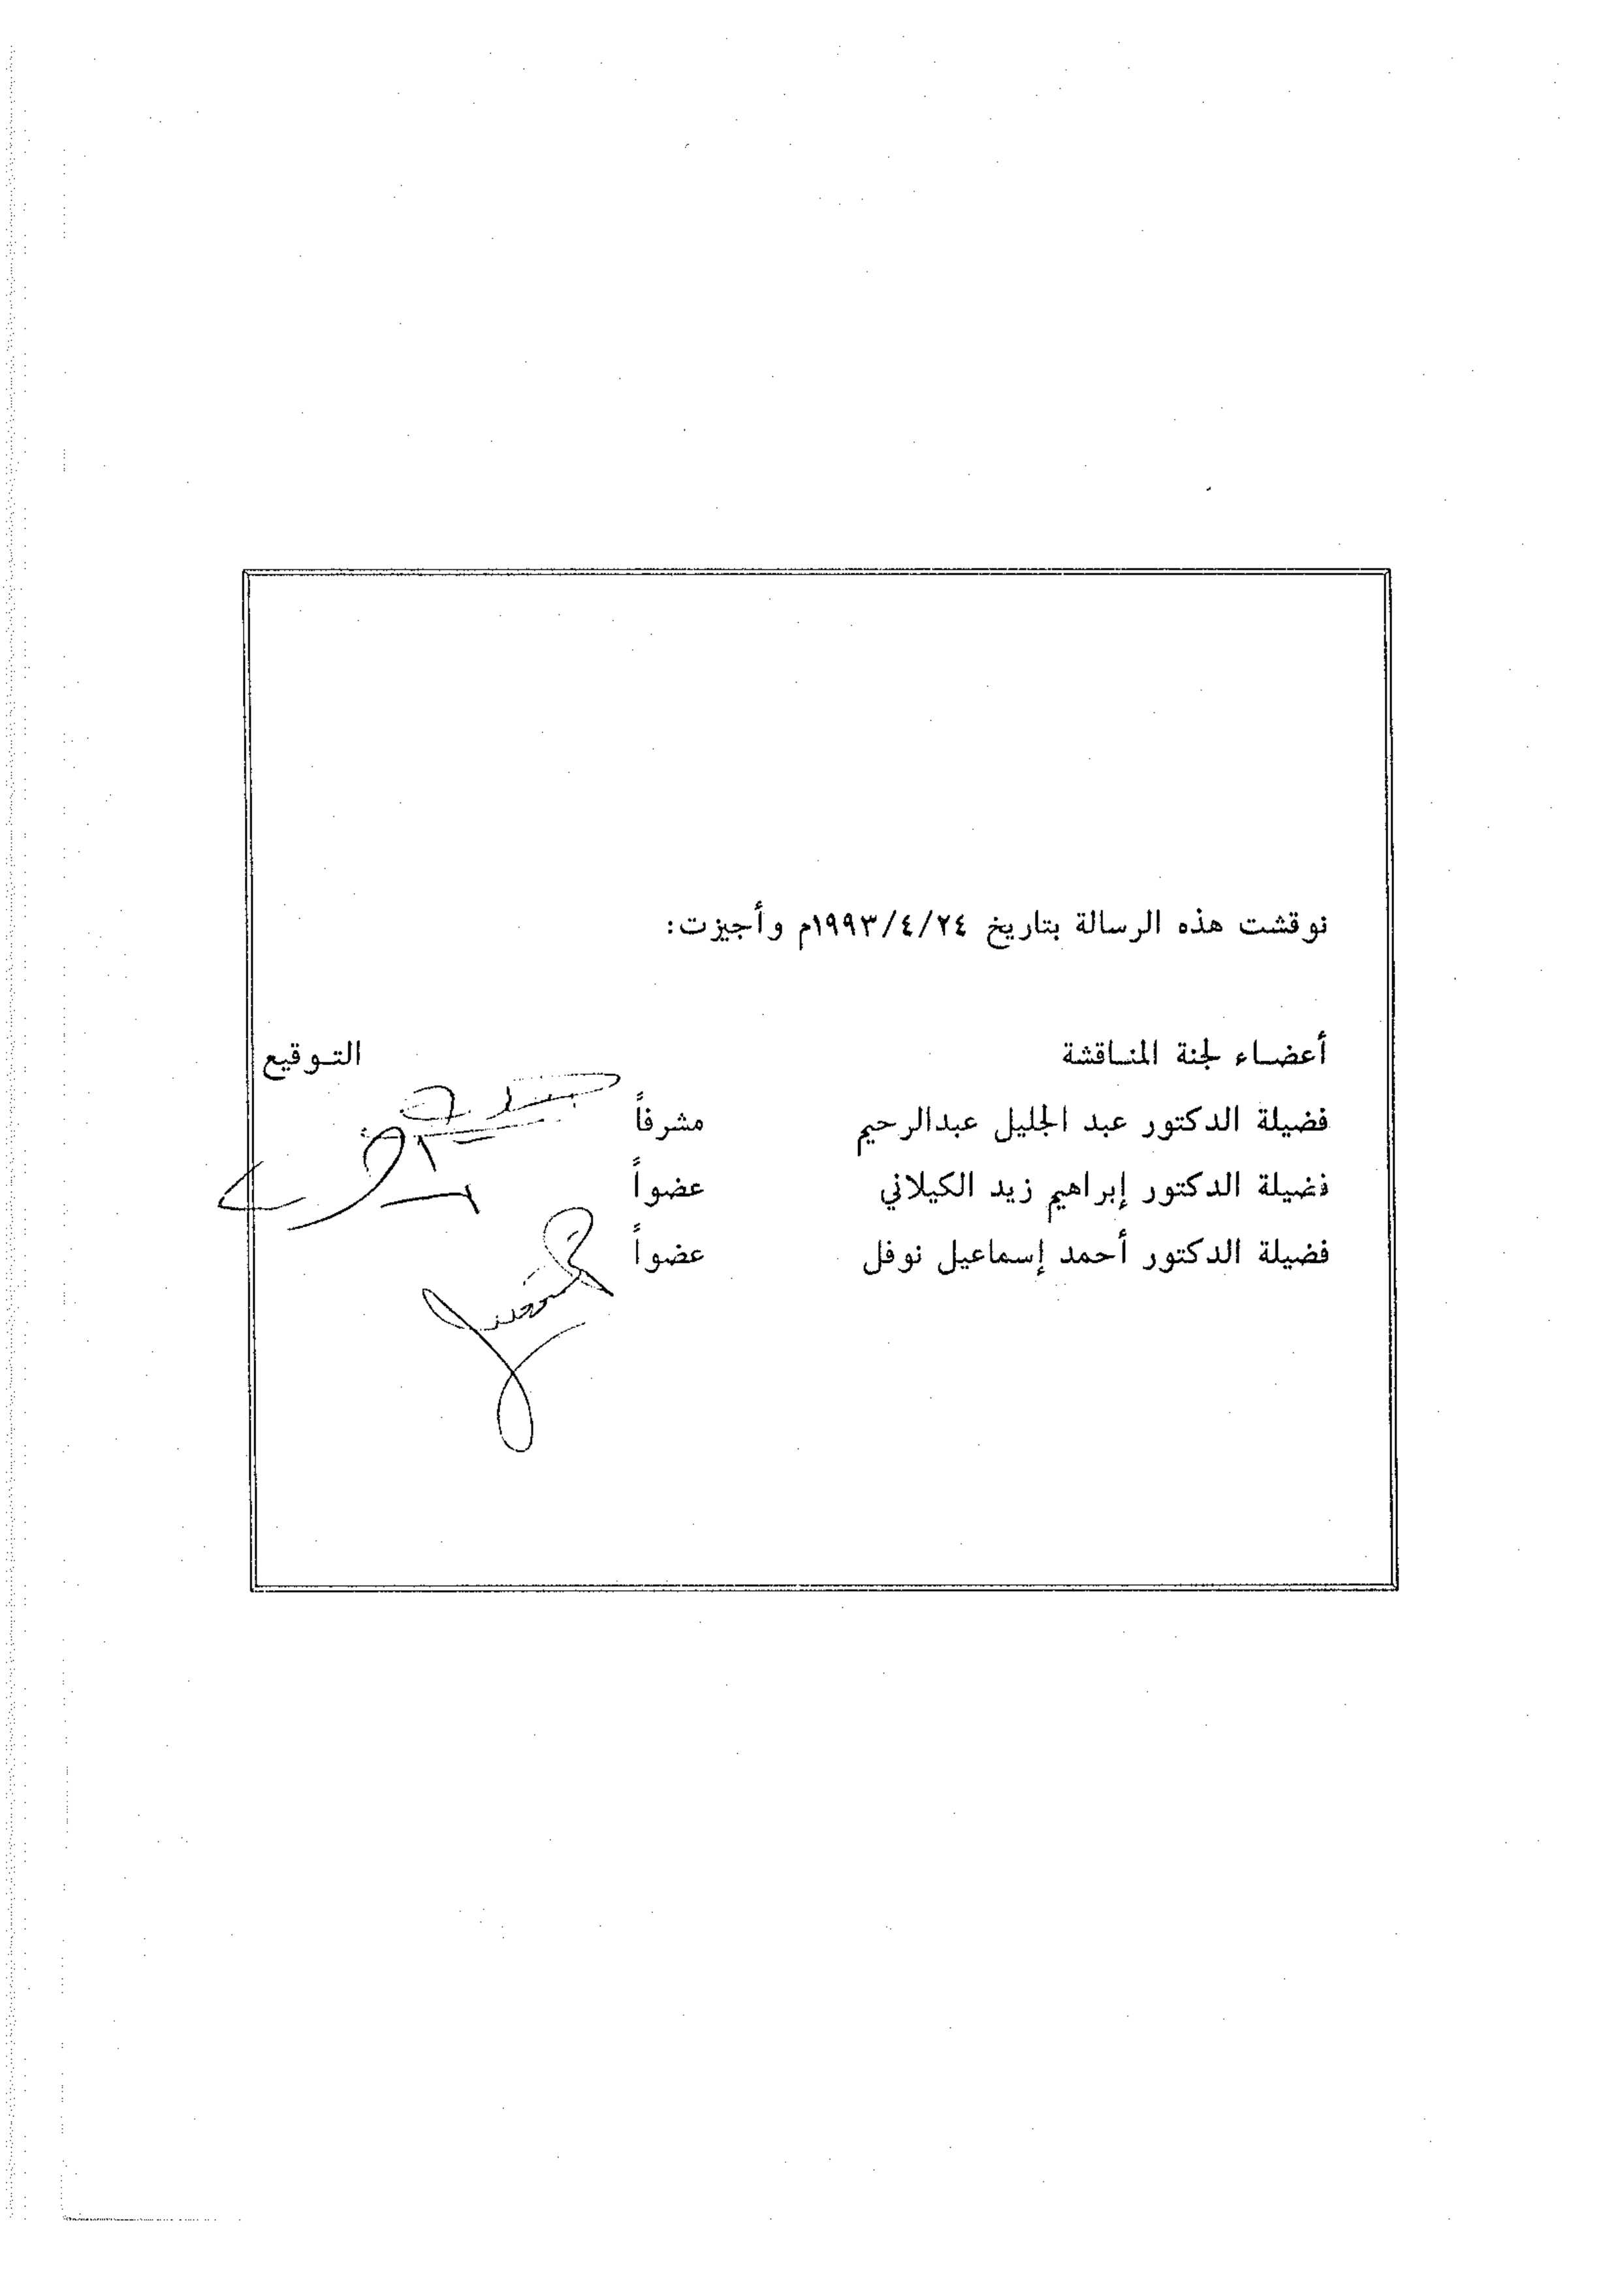 نوقشت هذه الرسالة بتاريخ ١٩٩٣/٤/٢٤م وأجيزت:
أعضاء لجنة المناقشة التوقيع
فضيلة الدكتور عبد الجليل عبدالرحيم مشرفاً
فضيلة الدكتور إبراهيم زيد الكيلاني عضواً
فضيلة الدكتور أحمد إسماعيل نوفل عضواً